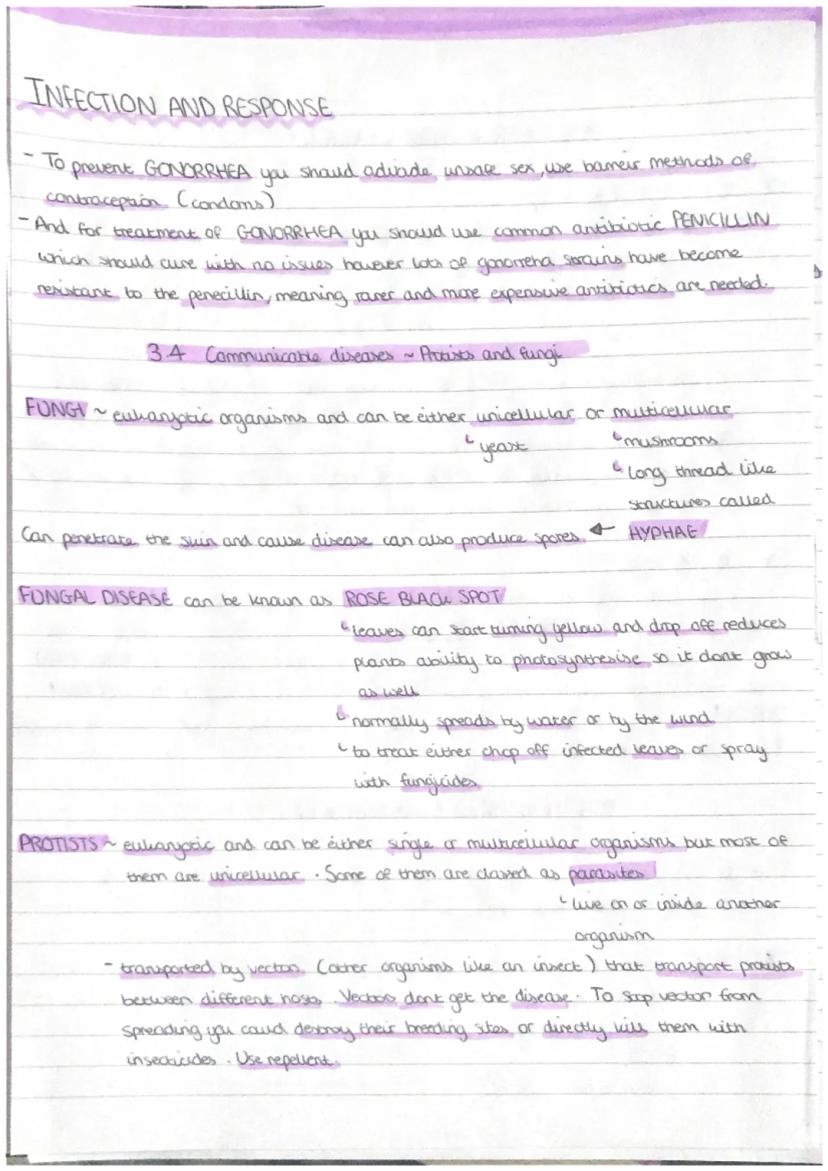 INFECTION AND RESPONSE
- To prevent GONORRHEA you should adivade unsafe sex, use barreir methods of
contraception (condoms)
- And for treatment of GONORRHEA you should use common antibiotic PENICILLIN
which should cure with no issues however lots of gonorreha strains have become
resistant to the penecillin, meaning rarer and more expensive antibiotics are needed.
3.4 Communicable diseases ~ Protists and fungi
FUNGI ~ eukaryotic organisms and can be either unicellular or multicellular
↳ yeast ↳ mushrooms
↳ long thread like
structures called
Can penetrate the skin and cause disease can also produce spores ← HYPHAE
FUNGAL DISEASE can be known as ROSE BLACK SPOT
↳ leaves can start turning yellow and drop off reduces
plants ability to photosynthesise so it dont grow
as well
↳ normally spreads by water or by the wind
↳ to treat either chop off infected leaves or spray
with fungicides
PROTISTS ~ eukaryotic and can be either single or multicellular organisms but most of
them are unicellular. Some of them are classed as parasites
↳ live on or inside another
organism
- transported by vector (other organisms like an insect) that transport protists
between different hosts. Vectors dont get the disease. To stop vector from
spreading you could destroy their breeding sites or directly kill them with
insecticides. Use repellent.